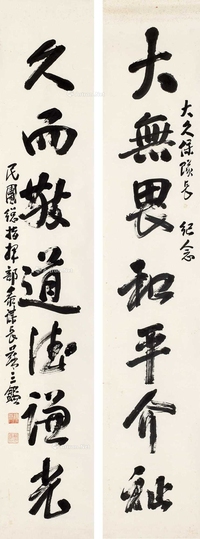 大久保隊長 紀念
大無畏和平介祉
久而敬道德謙光
民團總指揮部參謀長